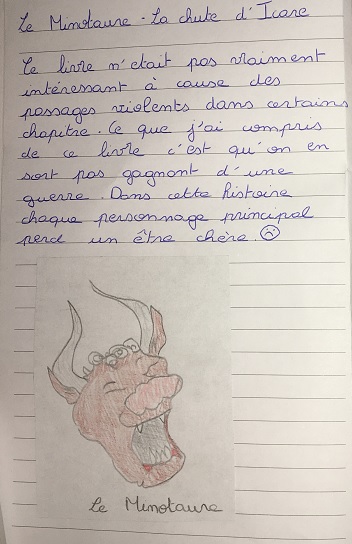 Le Minotaure - La chute d'Icare
Ce livre n'était pas vraiment
intéressant à cause des
passages violents dans certains
chapitre. Ce que j'ai compris
de ce livre c'est qu'on en
sort pas gagnant d'une
guerre. Dans cette histoire
chaque personnage principal
perd un être chère. ☹
Le Minotaure